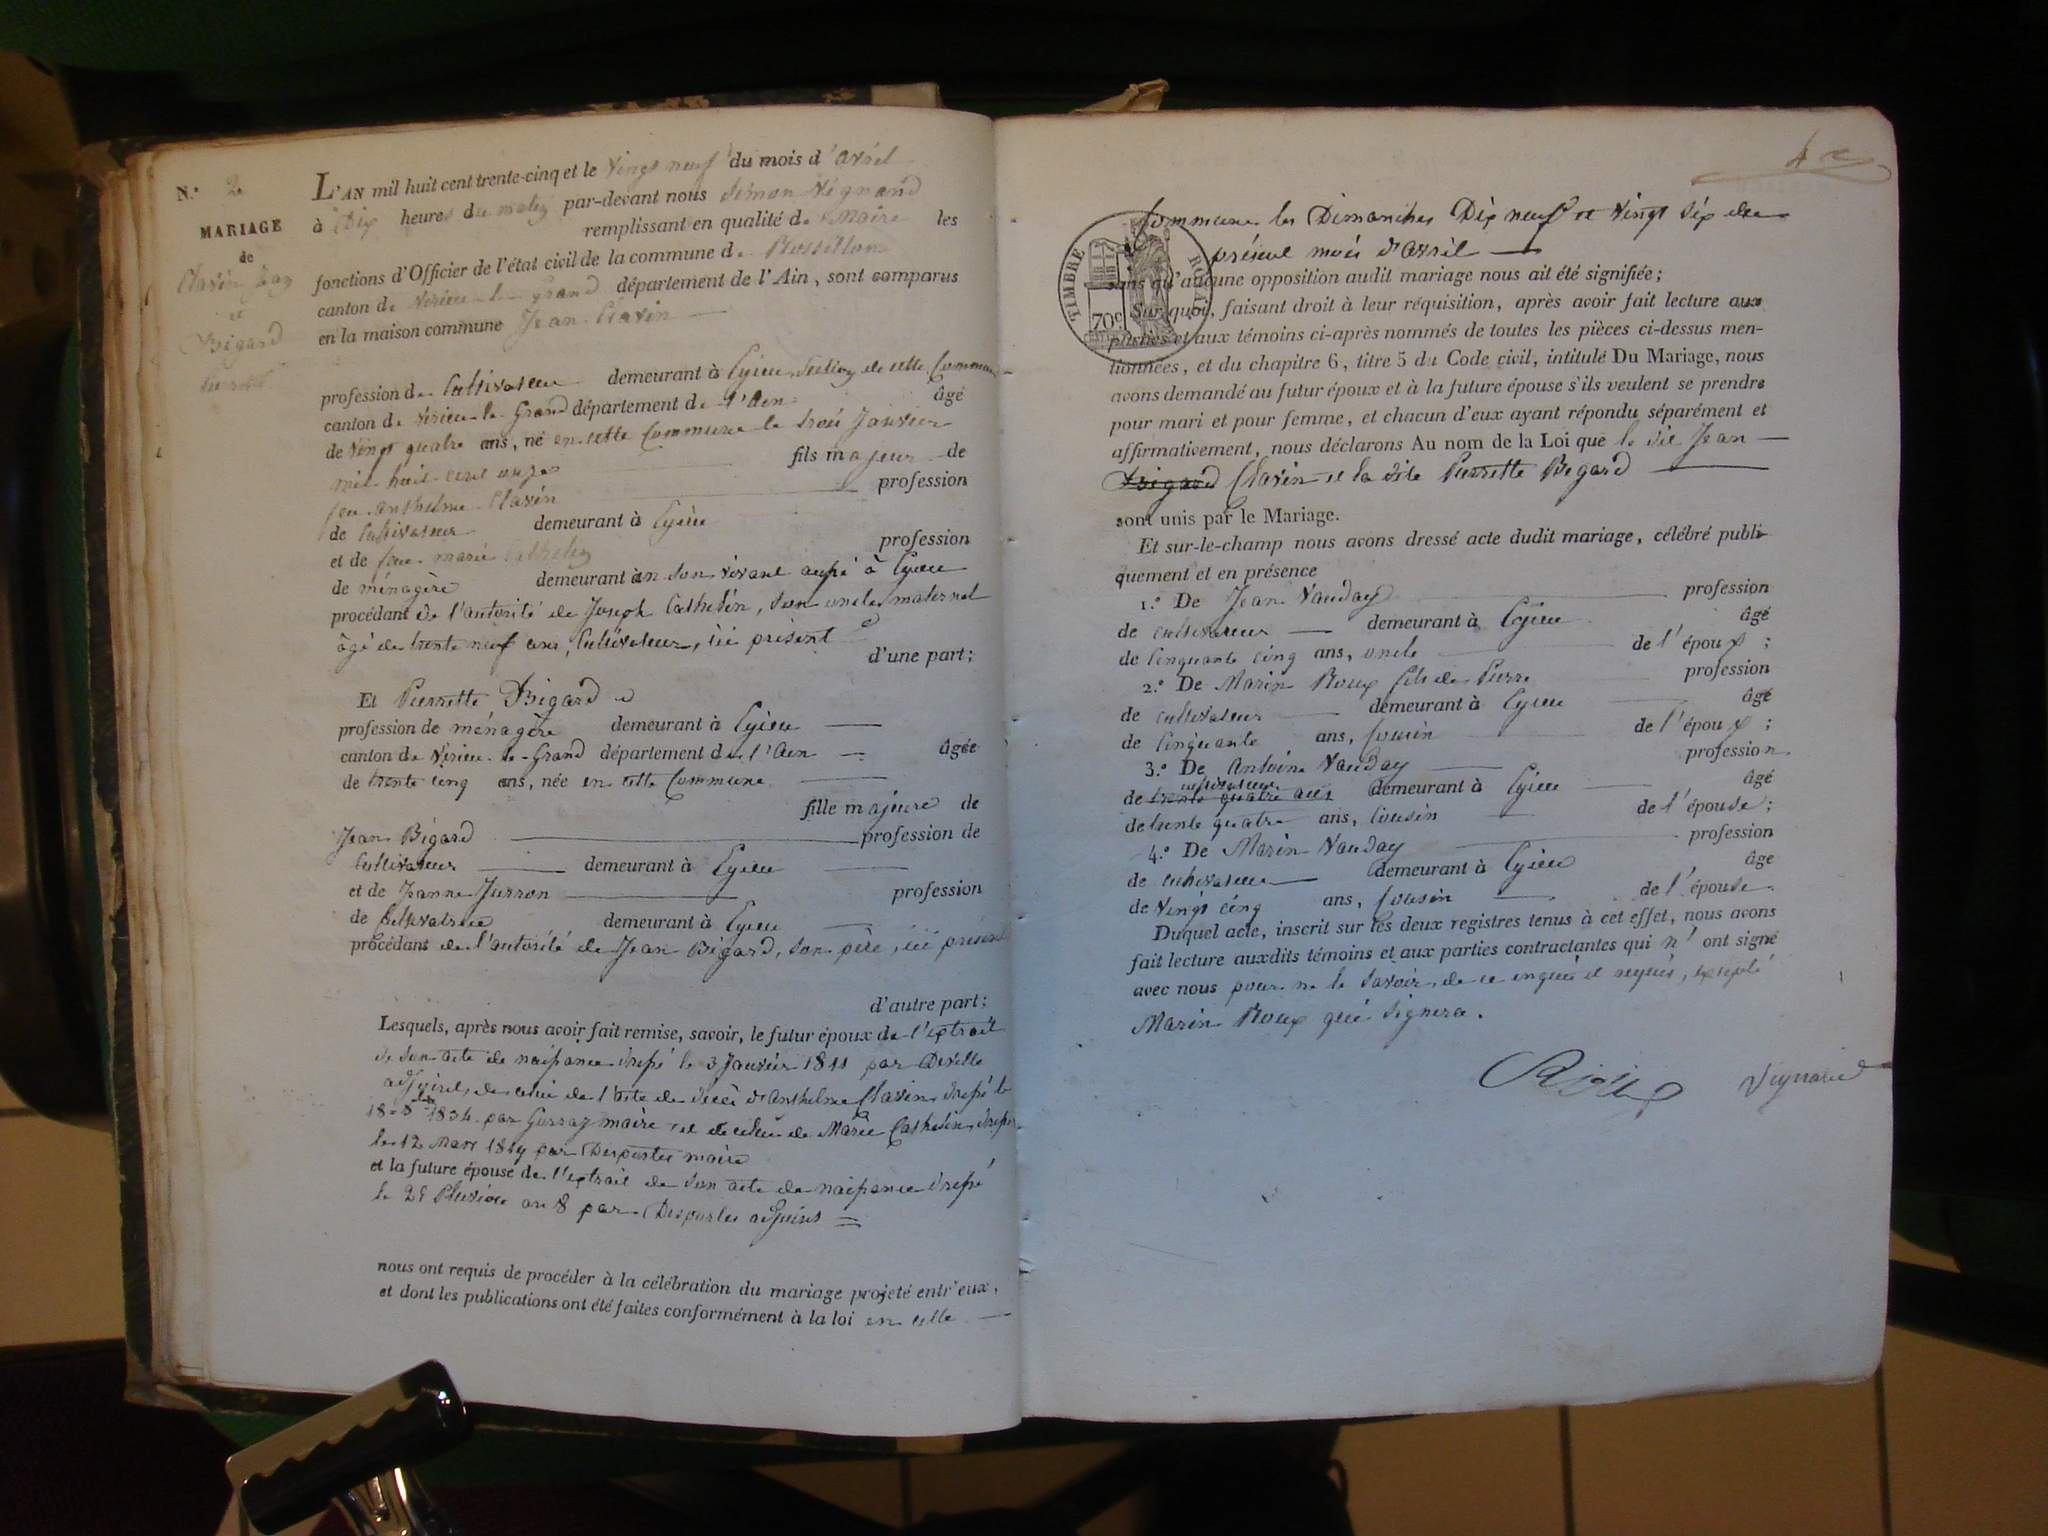 N.º 2
MARIAGE
de
Clavin Jean
et
Bigard
Pierrette
L'AN mil huit cent trente-cinq et le vingt neuf du mois d'avril
à Dix heures du matin par-devant nous Simon Vignand
remplissant en qualité de Maire les
fonctions d'Officier de l'état civil de la commune de Rossillon
canton de Virieu-le-Grand département de l'Ain, sont comparus
en la maison commune Jean Clavin
profession de Cultivateur demeurant à Eyieu, section de cette Commune
canton de Virieu-le-Grand département de l'Ain âgé
de vingt quatre ans, né en cette Commune le trois Janvier
mil huit cent onze fils majeur de
feu Anthelme Clavin profession
de Cultivateur demeurant à Eyieu
et de feue Marie Cathelin profession
de ménagère demeurant en son vivant aussi à Eyieu
procédant de l'autorité de Joseph Cathelin, son oncle maternel
âgé de trente neuf ans, Cultivateur, ici présent
d'une part;
Et Pierrette Bigard
profession de ménagère demeurant à Eyieu
canton de Virieu-le-Grand département de l'Ain âgée
de trente cinq ans, née en cette Commune
fille majeure de
Jean Bigard profession de
Cultivateur demeurant à Eyieu
et de Jeanne Jurron profession
de Cultivatrice demeurant à Eyieu
procédant de l'autorité de Jean Bigard, son père, ici présent
d'autre part;
Lesquels, après nous avoir fait remise, savoir, le futur époux de l'extrait
de son acte de naissance dressé le 3 Janvier 1811 par Deville
adjoint, de celui de l'acte de décès d'Anthelme Clavin dressé le
18 1834 par Gorraz maire et de celui de Marie Cathelin dressé
le 12 Mars 1819 par Desportes maire
et la future épouse de l'extrait de son acte de naissance dressé
le 28 Pluviose an 8 par Desportes adjoint
nous ont requis de procéder à la célébration du mariage projeté entr'eux,
et dont les publications ont été faites conformément à la loi en cette
TIMBRE ROYAL
70c
Commune les Dimanches Dix neuf et vingt six du
présent mois d'avril
sans qu'aucune opposition audit mariage nous ait été signifiée;
Sur quoi, faisant droit à leur réquisition, après avoir fait lecture aux
parties et aux témoins ci-après nommés de toutes les pièces ci-dessus men-
tionnées, et du chapitre 6, titre 5 du Code civil, intitulé Du Mariage, nous
avons demandé au futur époux et à la future épouse s'ils veulent se prendre
pour mari et pour femme, et chacun d'eux ayant répondu séparément et
affirmativement, nous déclarons Au nom de la Loi que le dit Jean
Bigard Clavin et la dite Pierrette Bigard
sont unis par le Mariage.
Et sur-le-champ nous avons dressé acte dudit mariage, célébré publi-
quement et en présence
1.º De Jean Vauday profession
de cultivateur demeurant à Eyieu âgé
de Cinquante cinq ans, oncle de l'époux;
2.º De Marin Roux fils de Pierre profession
de cultivateur demeurant à Eyieu âgé
de Cinquante ans, Cousin de l'époux;
3.º De Antoine Vauday profession
cultivateur
de trente quatre ans demeurant à Eyieu âgé
de trente quatre ans, Cousin de l'épouse;
4.º De Marin Vauday profession
de cultivateur demeurant à Eyieu âgé
de vingt cinq ans, Cousin de l'épouse.
Duquel acte, inscrit sur les deux registres tenus à cet effet, nous avons
fait lecture auxdits témoins et aux parties contractantes qui n'ont signé
avec nous pour ne le savoir, de ce enquis et requis, excepté
Marin Roux qui signera.
Vignand